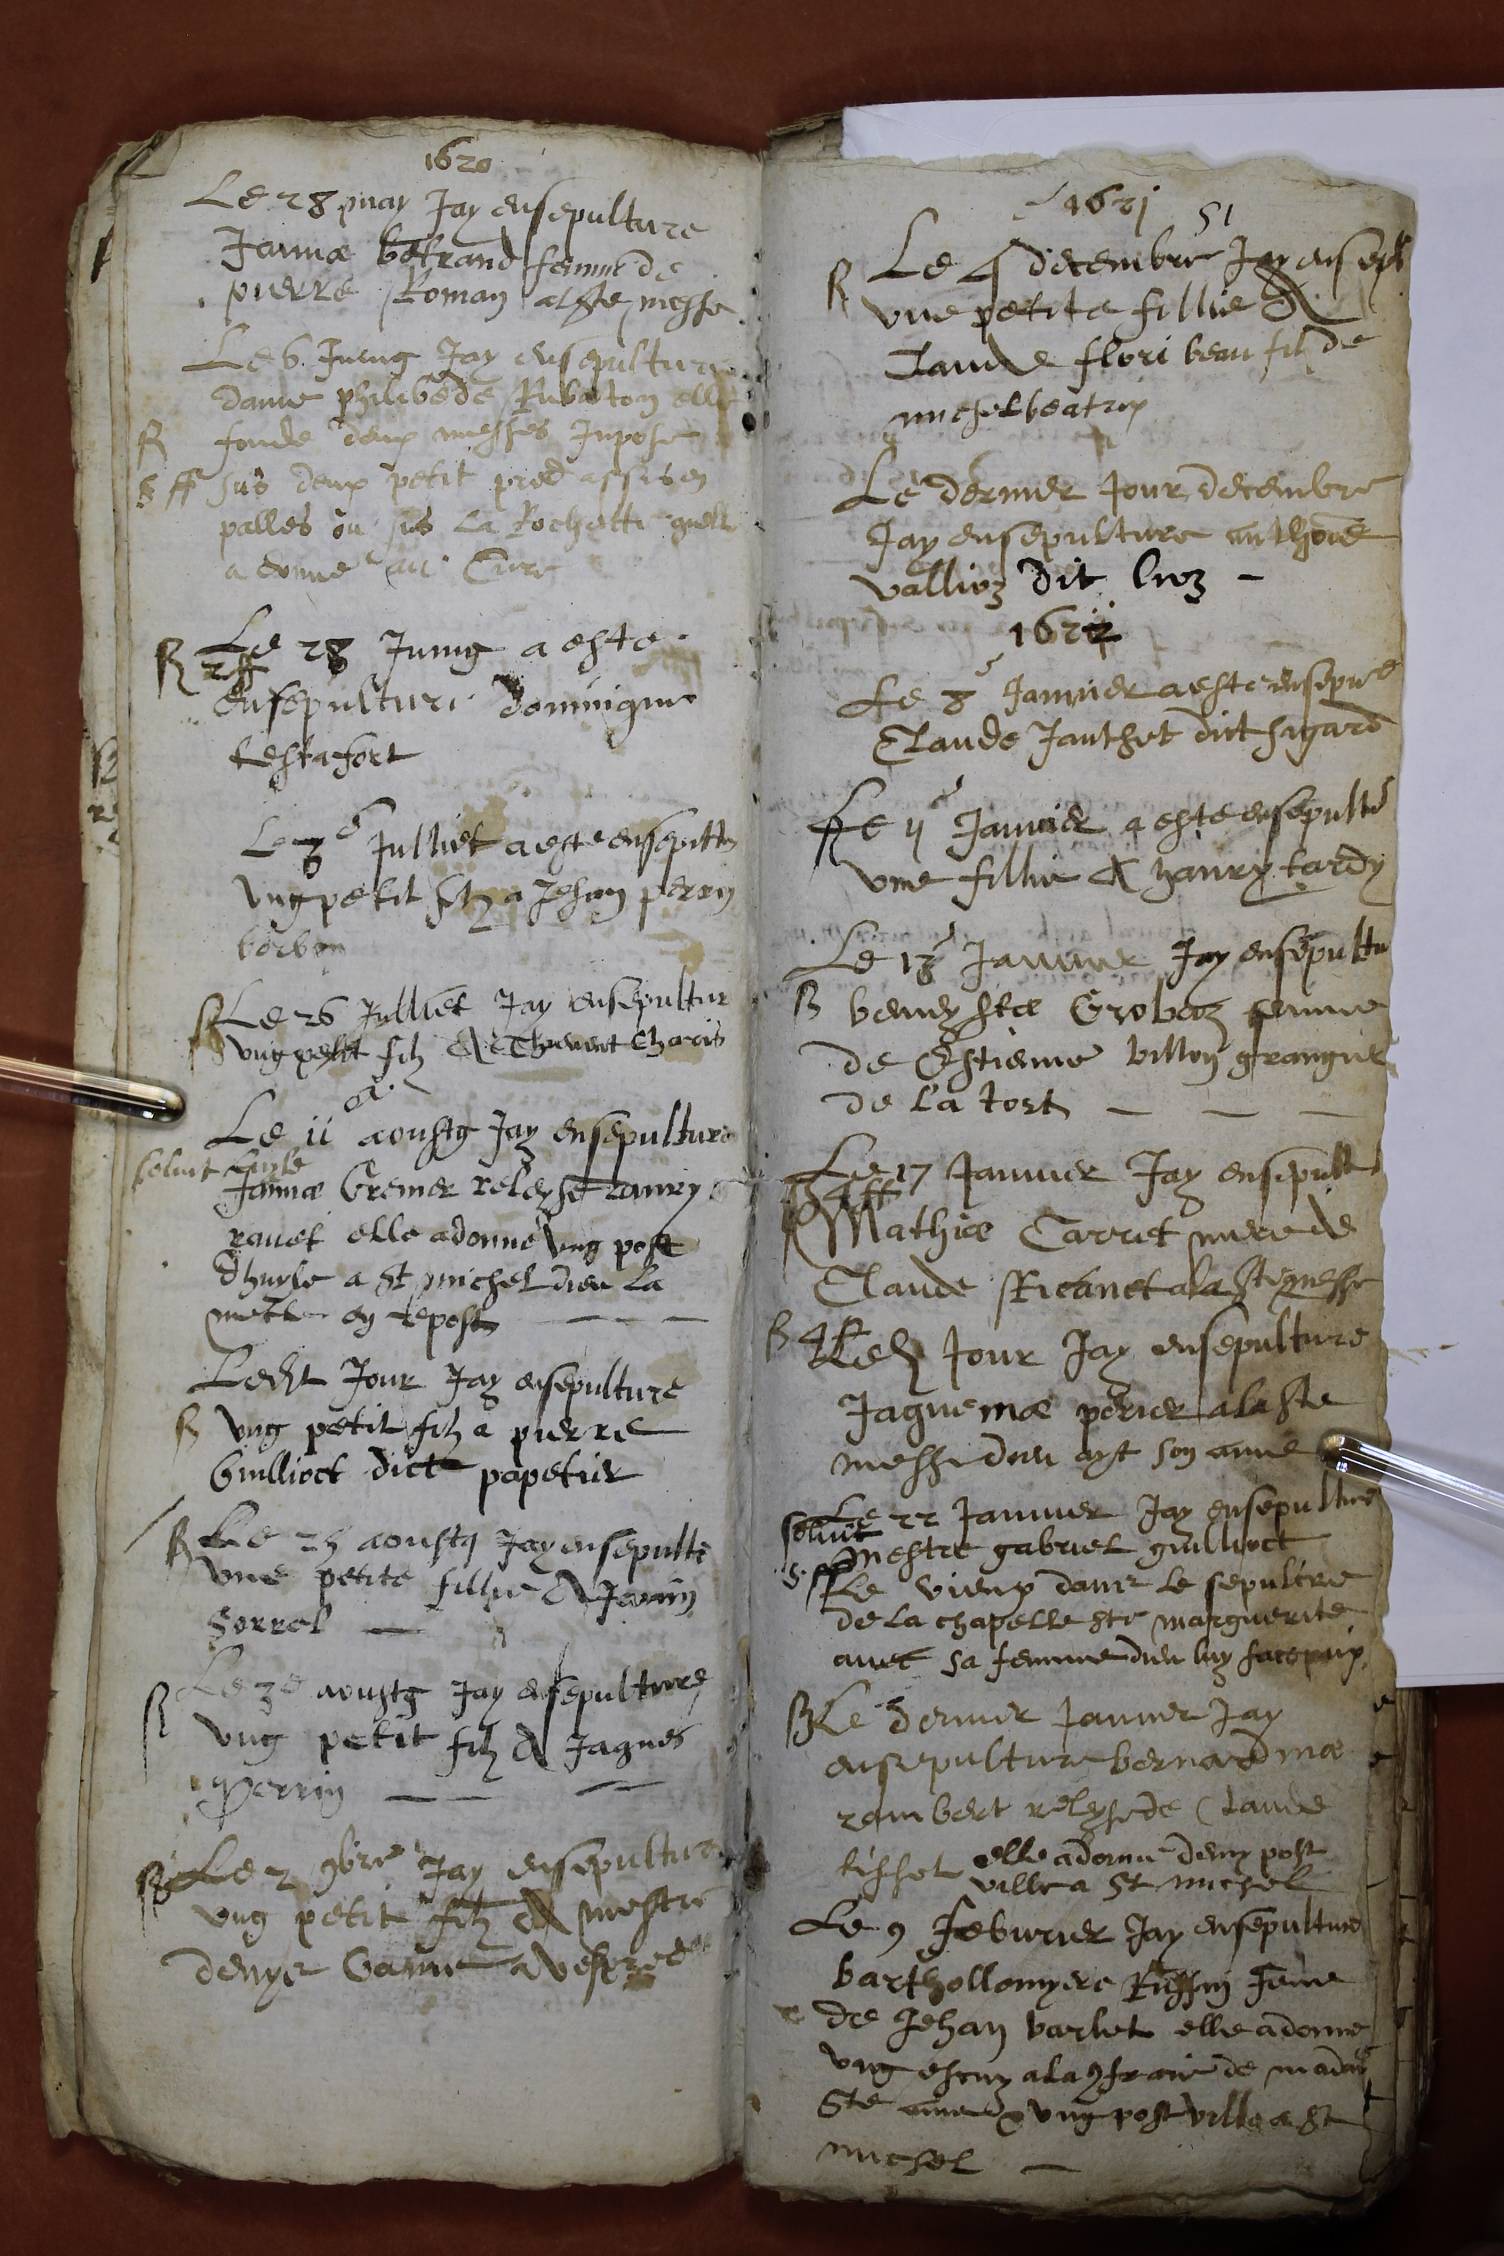 1620
Le 28 may Jay ensepulture
Janna bertrand femme de
pierre Roman a la ste messe
Le 6 Juing Jay ensepulture
dame philiberde Rubaton elle
R fonde deux messes Inpose
ff sus deux petit pred assis en
palles ou sus la Rochette quell
a donne au Cure
R Le 28 Juing a este
2 ff
ensepulture dominique
testafort
Le 3e Julliet a este ensepultu
ung petit filz a Jehan perrin
R Le 26 Julliet Jay ensepultur
ung petit filz A Thevent Charis
Le ii aoustz Jay ensepulture
soluit huyle
Janna Gremer releysse
ravet elle a donne ung post
dhuyle a St michel dieu la
mette en repostz
Ledit Jour Jay ensepulture
R ung petit filz a pierre
Guillioct dict papetier
R Le 25 aoustz Jay ensepulte
une petite fillie A Janin
sorrel
Le 30 aoustz Jay ensepulture
R ung petit filz A Jaques
Perrin
R Le 2 9bre Jay ensepulture
ung petit filz A mestre
denys
1621
51
R Le 4 decembre Jay ensepl
une petite fillie A
Claude flori beau filz de
michel beatrix
Le dernier Jour decembre
Jay ensepulture anthoine
vallioz dit
1622
Le 8 Janvier a este ensepure
Claude Janthet dict sigard
R Le ii Janvier a este ensepulte
une fillie A hanry tardy
Le 13 Janvier Jay ensepultu
R Groboz femme
de Estienne billon grangier
de la tort
Le 17 Janvier Jay ensepult
R 4 ff
Mathia Carret mere de
Claude Ricanet a la ste messe
R 4 ff Ledit Jour Jay ensepulture
Jaquema perier a la ste
messe dieu ayt son ame
Le 22 Janvier Jay ensepulture
soluit
mestre gabriel guillioct
5 ff le vieux dans le sepulcre
de la chapelle ste marguerite
avec sa femme dieu luy face paix
R Le dernier Janvier Jay
ensepulture bernardma
rambert releysse de Claude
tisset elle a donne demy post
ville a St michel
Le 9 febvrier Jay ensepulture
barthollomyere Ruffin feme
de Jehan barlet elle a donne
ung escuz a la 9frarie de madam
Ste anne & ung post ville a St
michel